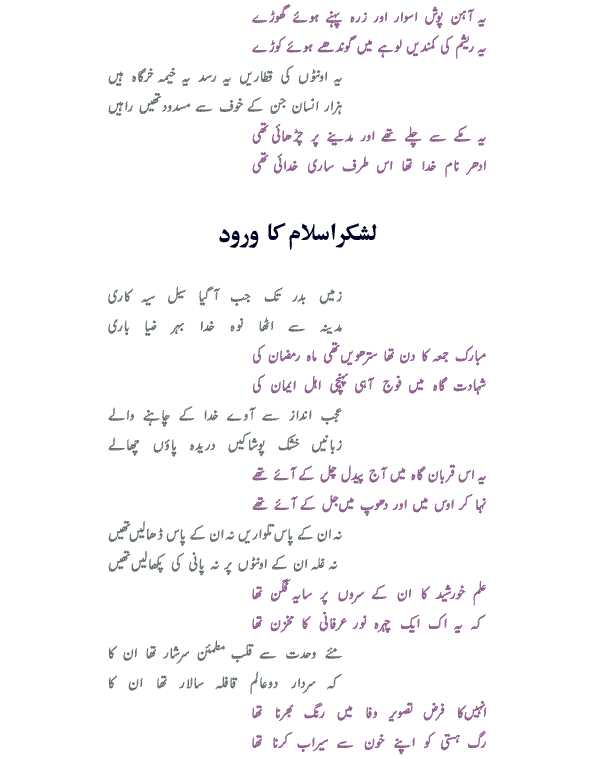 یہ آہن پوش اسوار اور زرہ پہنے ہوئے گھوڑے
یہ ریشم کی کمندیں لوہے میں گوندھے ہوئے کوڑے
یہ اونٹوں کی قطاریں یہ رسد یہ خیمہ خرگاہ ہیں
ہزار انسان جن کے خوف سے مسدود تھیں راہیں
یہ مکے سے چلے تھے اور مدینے پر چڑھائی تھی
ادھر نام خدا تھا اس طرف ساری خدائی تھی
لشکر اسلام کا ورود
زمیں بدر تک جب آ گیا سیل سیہ کاری
مدینہ سے اٹھا نوہ خدا بہر ضیا باری
مبارک جمعہ کا دن تھا سترھویں تھی ماہ رمضان کی
شہادت گاہ میں فوج آہی پہنچی اہل ایمان کی
عجب انداز سے آوے خدا کے چاہنے والے
زبانیں خشک پوشاکیں دریدہ پاؤں چھالے
یہ اس قربان گاہ میں آج پیدل چل کے آئے تھے
نہا کر اوس میں اور دھوپ میں جل کے آئے تھے
نہ ان کے پاس تلواریں نہ ان کے پاس ڈھالیں تھیں
نہ غلہ ان کے اونٹوں پر نہ پانی کی پکھالیں تھیں
علم خورشید کا ان کے سروں پر سایہ فگن تھا
کہ یہ اک ایک چہرہ نور عرفانی کا مخزن تھا
مئے وحدت سے قلب مطمئن سرشار تھا ان کا
کہ سردار دوعالم قافلہ سالار تھا ان کا
انہیں کا فرض تصویر وفا میں رنگ بھرنا تھا
رگ ہستی کو اپنے خون سے سیراب کرنا تھا